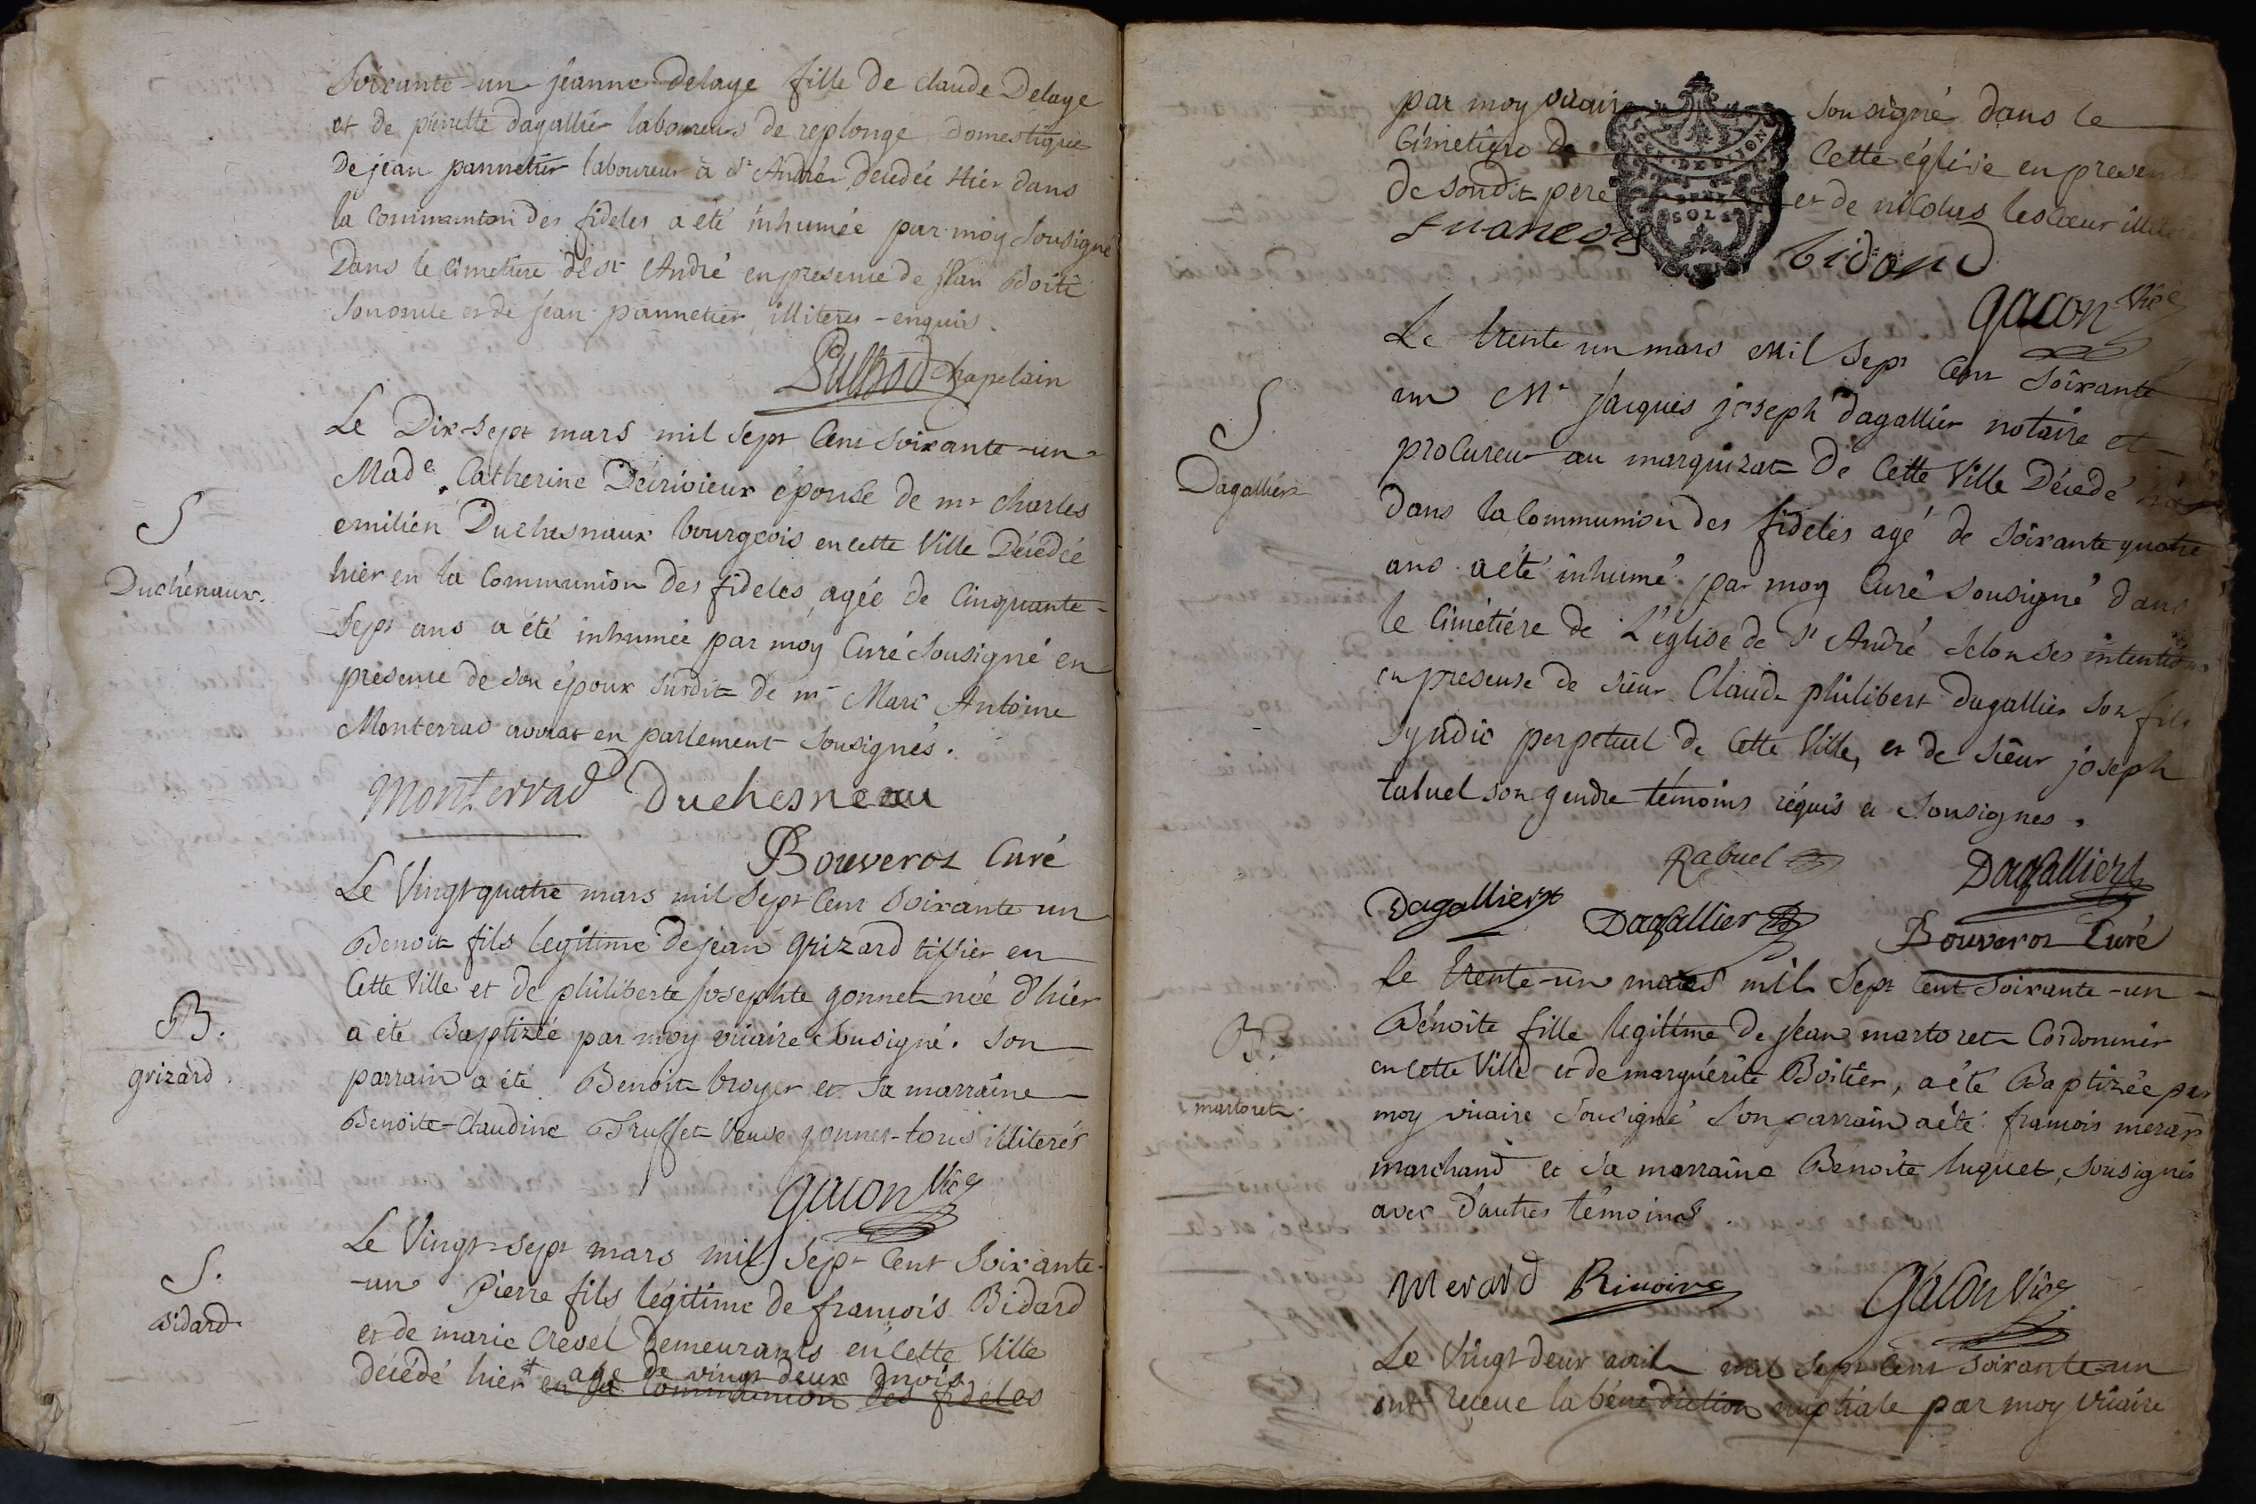 Soixante-un jeanne Delaye fille de claude Delaye
et de pierrette dagallier laboureurs de replonge Domestique
De jean pannetier laboureur à St André, Décédée Hier dans
la Communion des fideles a été inhumée par moy Sousigné
Dans le Cimetiere de St André en presence de jean Boitie
Son oncle et de jean pannetier illiteres - enquis.
Chapelain
Le Dix-sept mars mil sept Cent Soixante-un
Made. Catherine Décrivieux épouse de mr charles
emilien Duchesnaux bourgeois en cette Ville Décédée
S
Duchénaux.
hier en la Communion Des fideles, agée de Cinquante-
Sept ans a été inhumée par moy Curé Sousigné en
présence de son époux susdit de mr Marc Antoine
Monterrad avocat en parlement Sousignés.
Monterrad Duchesneau
Bouveros Curé
Le Vingt quatre mars mil Sept Cent Soixante un
Benoit fils legitime de jean grizard tissier en
Cette Ville et de philiberte josephte gonnet née d'hier
B.
grizard.
a été Baptizéé par moy vicaire Sousigné. Son
parrain a été Benoit broyer et Sa marraine
Benoite-Claudine Truffet Veuve gonnet-tous illiterés
Gacon Vice
Le Vingt-Sept mars mil Sept Cent Soixante-
-un Pierre fils légitime de françois Bidard
S.
Bidard
et de marie Crevel Demeurants en Cette Ville
age de vingt deux mois
décédé hier + en la Communion des fideles
par moy vicaire Sousigné dans le
Cimetiere de Cette église en presence
De Sondit pere et de nicolas lescœur illitere
DEUX
SOLS
francois bidard
Gacon Vice
Le trente un mars Mil Sept Cent Soixante
un Mr jacques joseph Dagallier notaire et
procureur au marquizat De Cette Ville Décedé hier
S
Dagallier
Dans la Communion des fideles agé de Soixante quatre
ans a été inhumé par moy Curé Sousigné dans
le Cimétiére de L'église de St André Selon Ses intentions
en presense de Sieur Claude philibert dagallier Son fils
Syndic perpetuel de Cette Ville, et de Sieur joseph
tabuel Son gendre témoins réquis et Sousignes.
Rabuel Dagallier
Dagallier Dagallier Bouveros Curé
Le trente-un mars mil Sept Cent Soixante-un
B.
martoret.
Bénoite fille legitime de jean martoret Cordonnier
en Cette Ville et de marguérite Boitier, a été Baptizée par
moy vicaire Sousigné Son parrain a été francois merard
marchand et Sa marraine Benoite luquet, Sousignés
avec d'autres témoins.
Merard Rivoire Gacon Vice
Le Vingt deux avril mil Sept Cent Soixante-un
ont reçeue la bénédiction nuptiale par moy vicaire